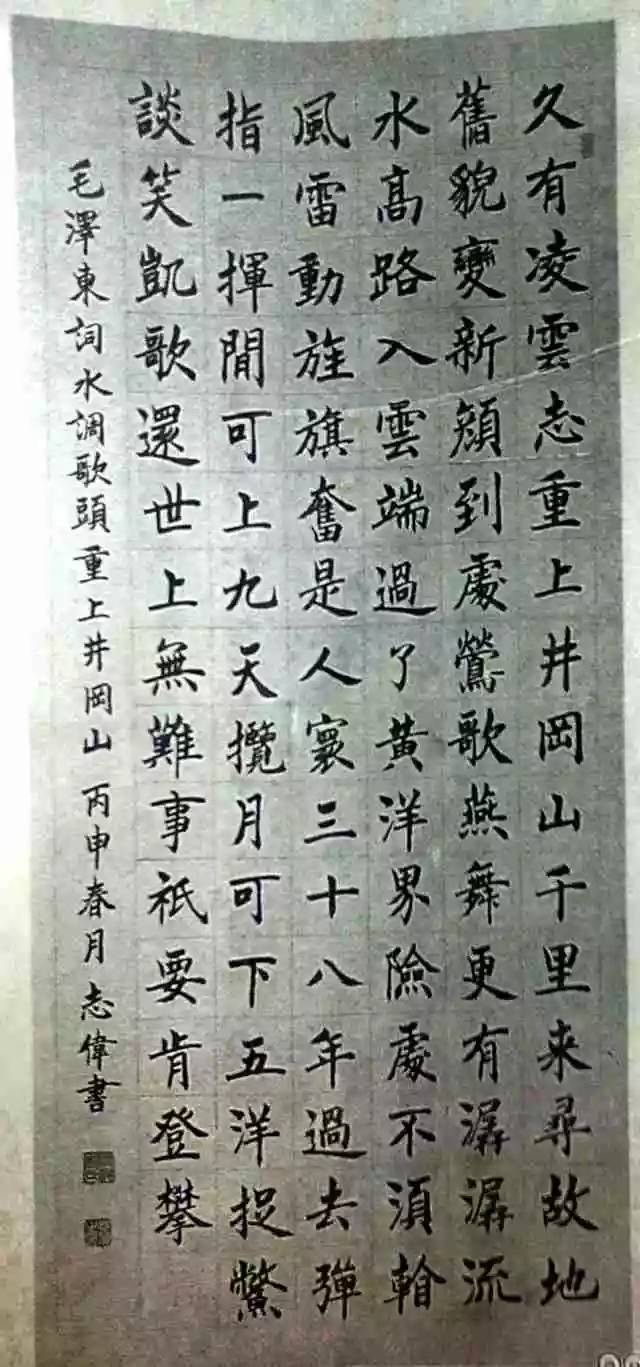 久有凌雲志重上井岡山千里来尋故地
舊貌變新顏到處鶯歌燕舞更有潺潺流
水髙路入雲端過了黄洋界險處不須
風雷動旌旗奮是人寰三十八年過去彈
指一揮閒可上九天攬月可下五洋捉鱉
談笑凱歌還世上無難事祇要肯登攀
毛澤東詞水調歌頭重上井岡山丙申春月志偉書